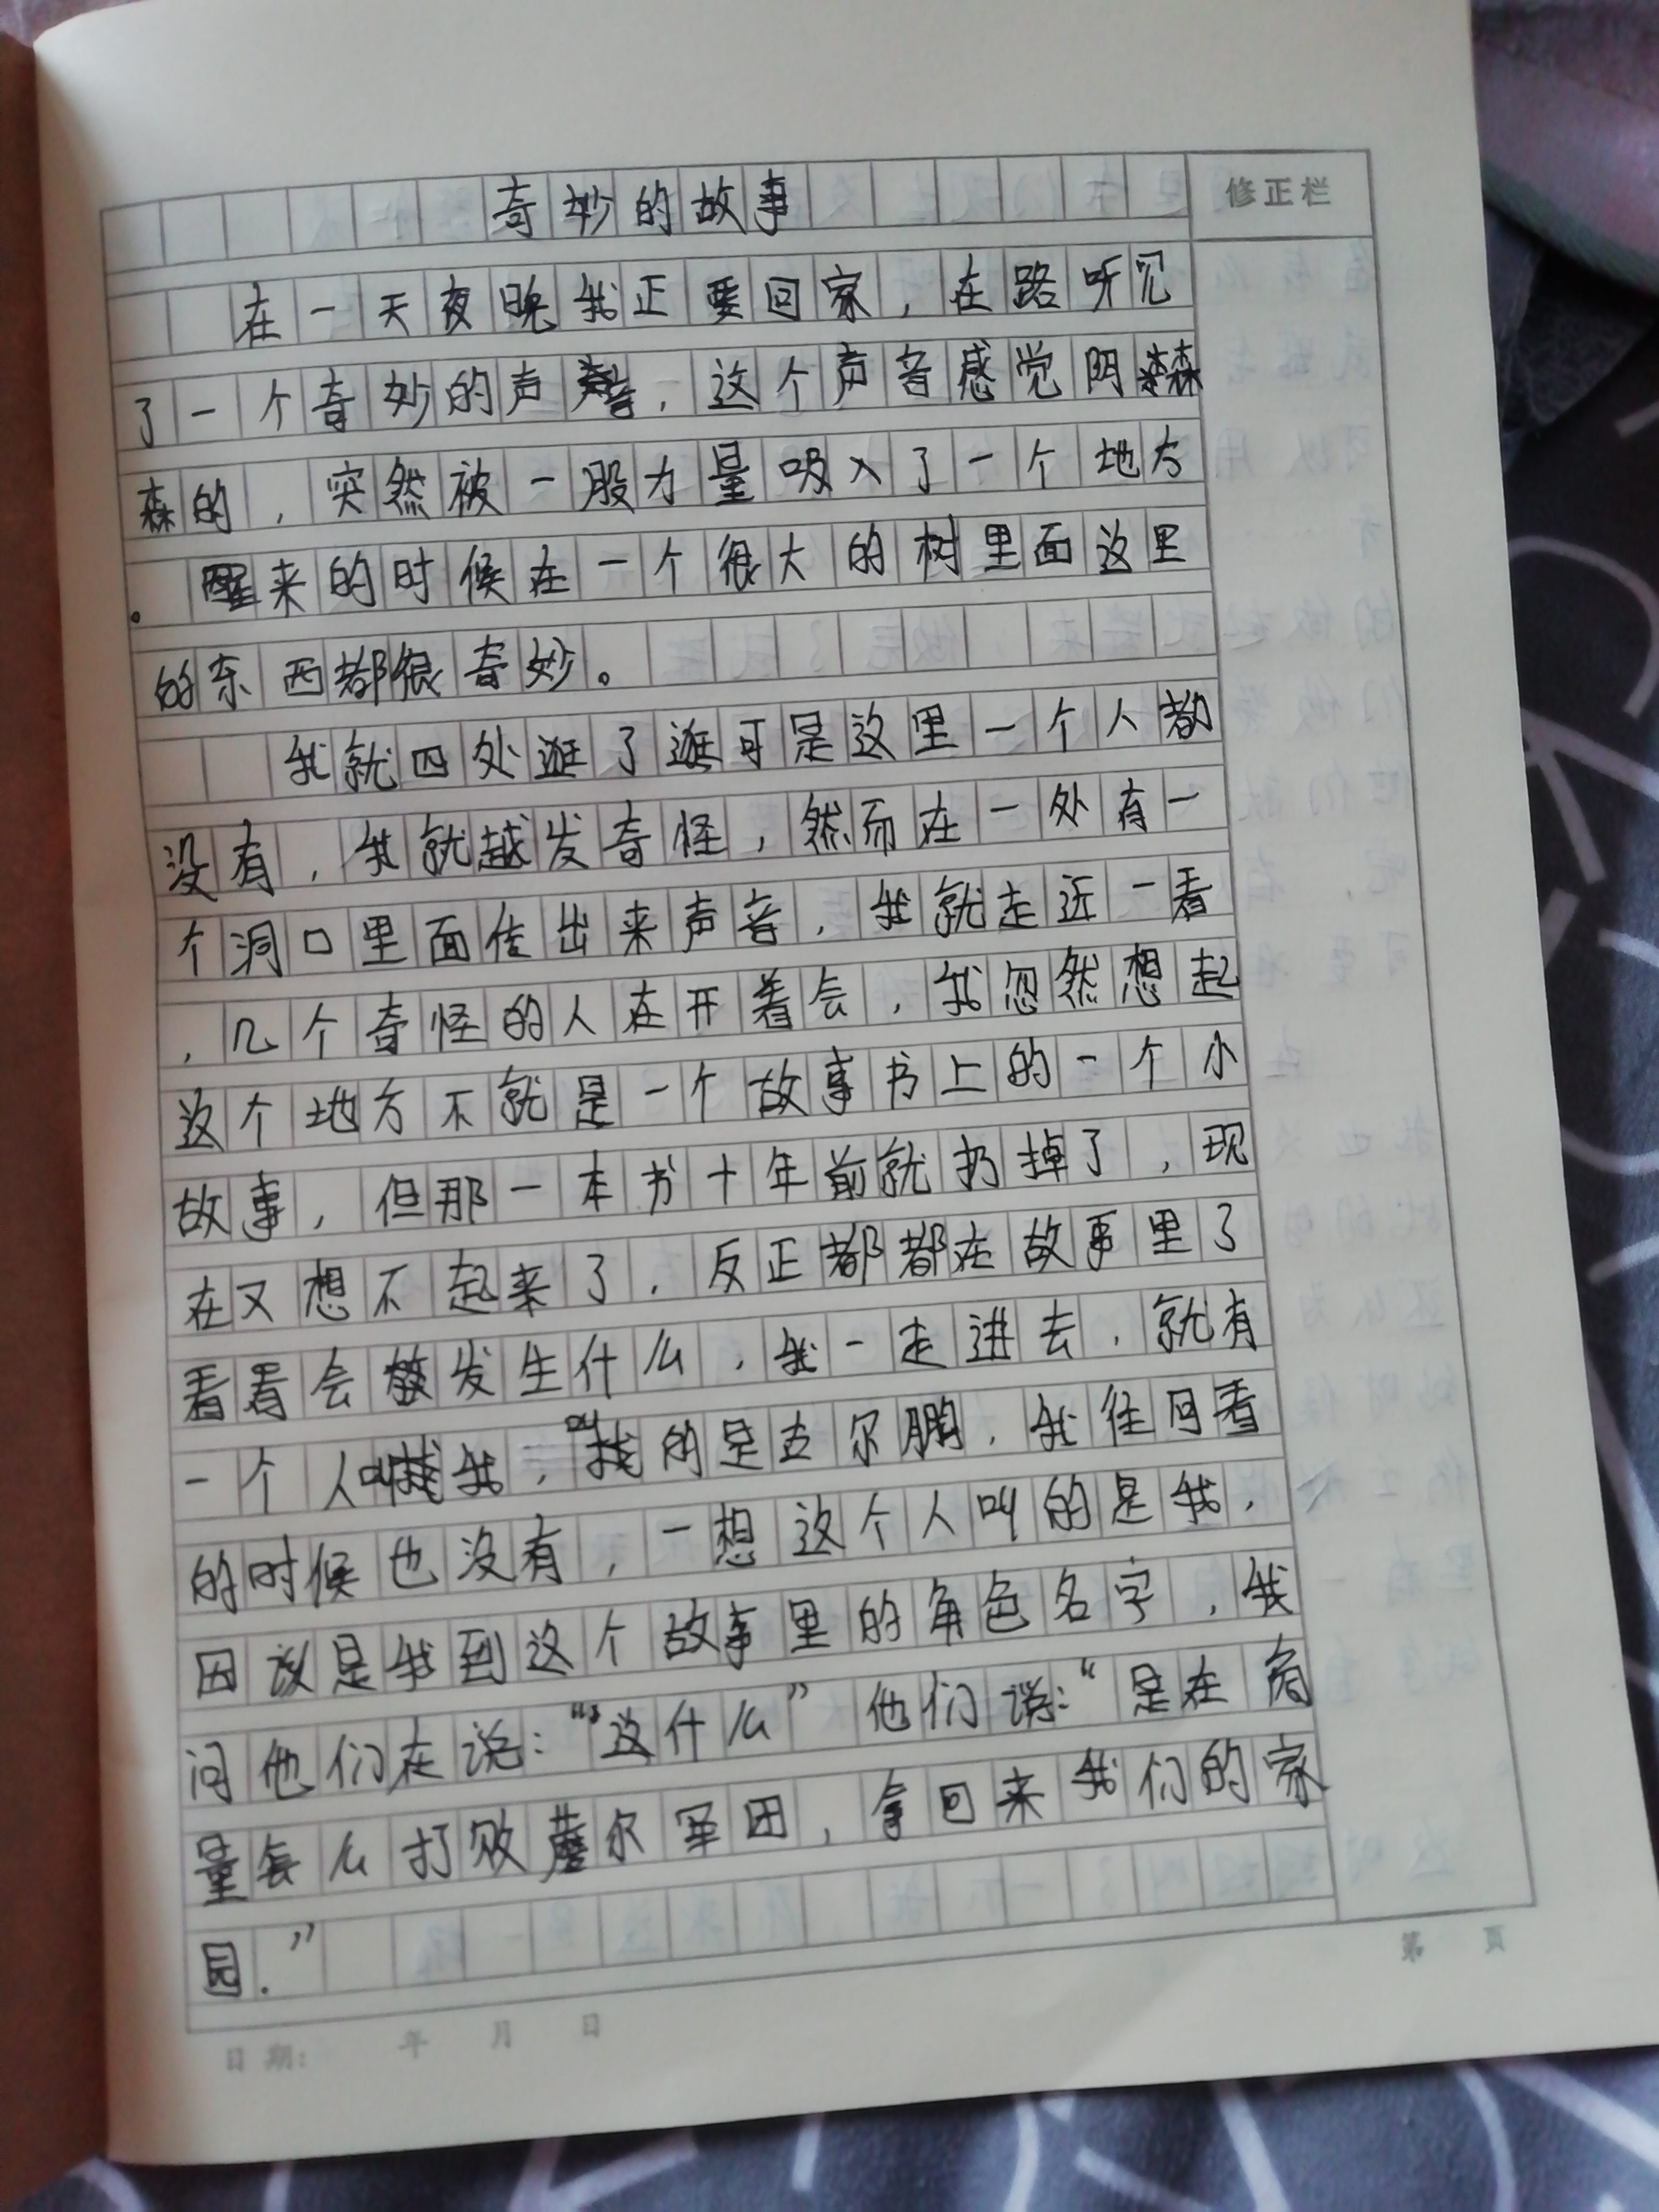 奇妙的故事
修正栏
在一天夜晚我正要回家，在路听见
了一个奇妙的声音，这个声音感觉阴森
森的，突然被一股力量吸入了一个地方
。醒来的时候在一个很大的树里面这里
的东西都很奇妙。
我就四处逛了逛可是这里一个人都
没有，我就越发奇怪，然而在一处有一
个洞口里面传出来声音，我就走近一看
，几个奇怪的人在开着会，我忽然想起
这个地方不就是一个故事书上的一个小
故事，但那一本书十年前就扔掉了，现
在又想不起来了，反正都都在故事里了
看看会发生什么，我一走进去，就有
一个人喊我，叫我的是古尔鹏，我往回看
的时候也没有，一想这个人叫的是我，
因该是我到这个故事里的角色名字，我
问他们在说：“这什么”他们说：“是在商
量怎么打败尔军团，拿回来我们的家
园.”
日期： 年 月 日
第 页